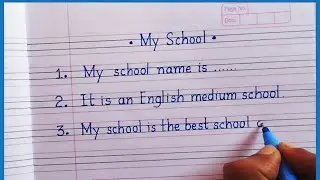 Page No.
Date
• My School •
1. My school name is ......
2. It is an English medium school.
3. My school is the best school